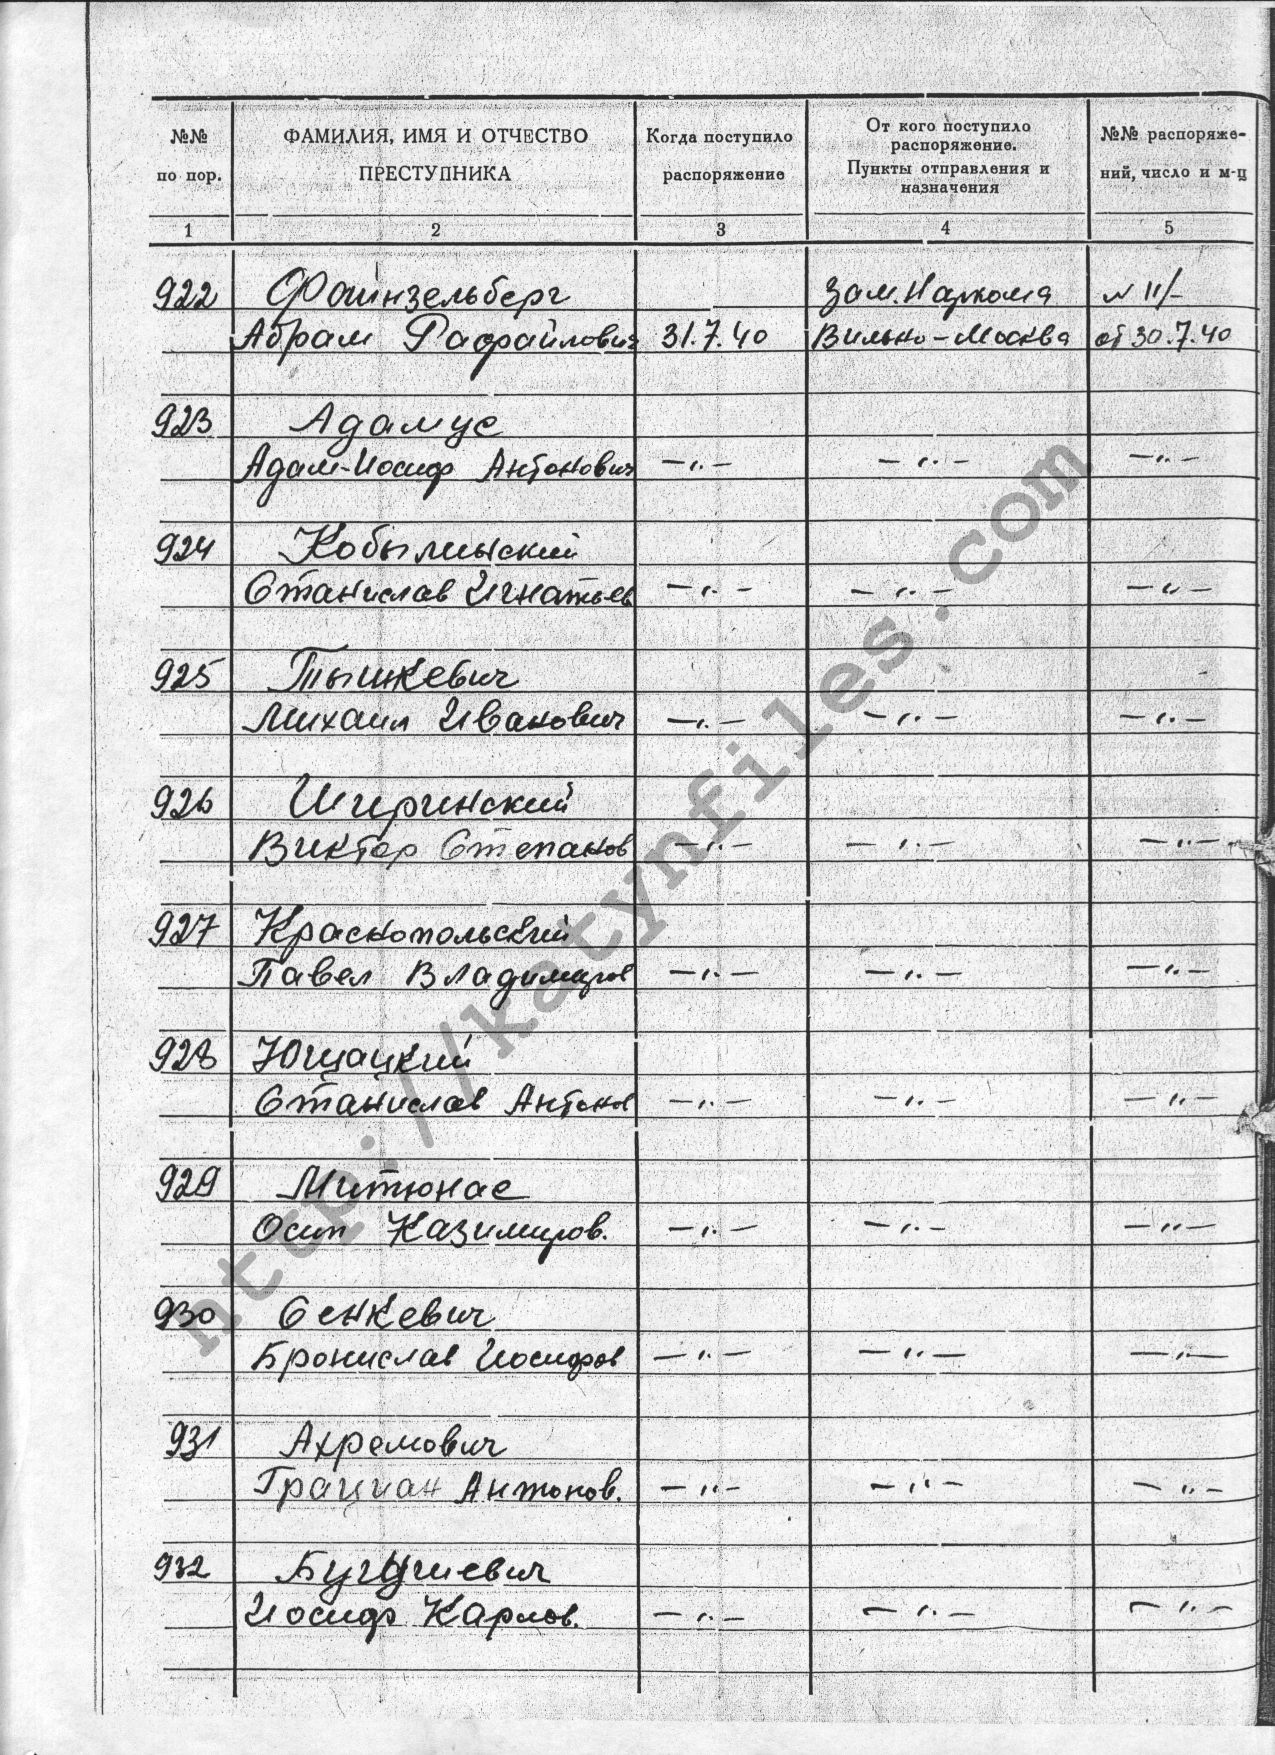 №№ по пор.
ФАМИЛИЯ, ИМЯ И ОТЧЕСТВО ПРЕСТУПНИКА
Когда поступило распоряжение
От кого поступило распоряжение. Пункты отправления и назначения
№№ распоряжений, число и м-ц
1 2 3 4 5
922 Файнзельберг Зам. Наркома № 11/-
Абрам Рафаилович 31.7.40 Вильно-Москва от 30.7.40
923 Адамус
Адам-Иосиф Антонович —"— —"— —"—
924 Кобылинский
Станислав Игнатьев —"— —"— —"—
925 Тышкевич
Михаил Иванович —"— —"— —"—
926 Ширинский
Виктор Степанов —"— —"— —"—
927 Краснопольский
Павел Владимиров —"— —"— —"—
928 Ющацкий
Станислав Антонов —"— —"— —"—
929 Митюнас
Осип Казимиров. —"— —"— —"—
930 Сенкевич
Бронислав Иосифов —"— —"— —"—
931 Ахремович
Грациан Антонов. —"— —"— —"—
932
Иосиф Карлов. —"— —"— —"—
http://katynfiles.com